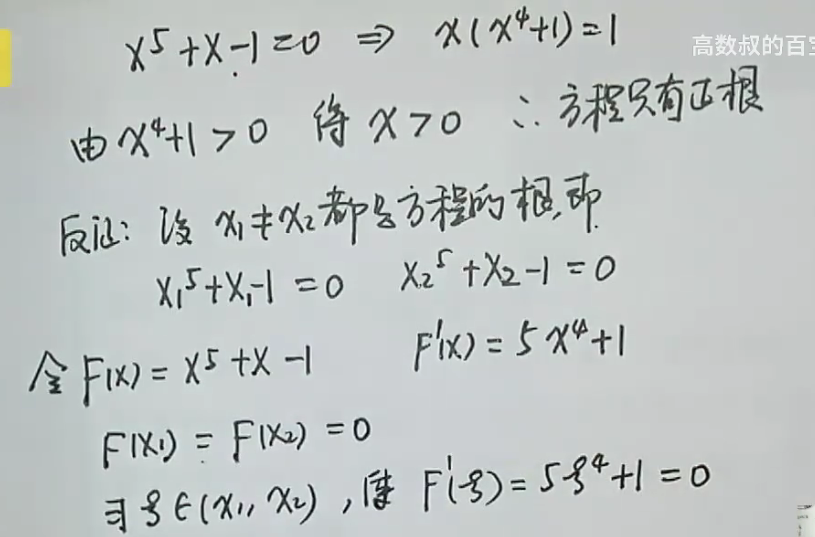 x⁵+x-1=0 ⇒ x(x⁴+1)=1
高数叔的百宝
由 x⁴+1>0 得 x>0 ∴方程只有正根
反证: 设 x₁≠x₂都是方程的根,即
x₁⁵+x₁-1=0 x₂⁵+x₂-1=0
令 F(x)=x⁵+x-1 F'(x)=5x⁴+1
F(x₁)=F(x₂)=0
∃ξ∈(x₁,x₂),使 F'(ξ)=5ξ⁴+1=0